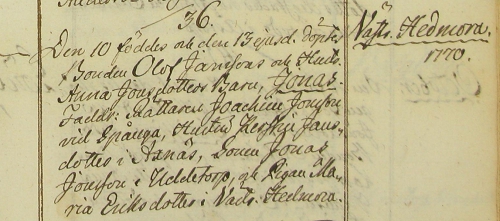 36.
Den 10 föddes och den 13 ejusd. döptes
Bonden Olof Janssons och Hust.
Anna Jonsdotters Barn, Jonas
Fadd: Mattaren Joachim Jonson
vid Spånga, Hustru Kerstin Jans-
dotter i Asnäs, Sonen Jonas
Jonsson i Uddetorp, och Pigan Ma-
ria Eriksdotter i Väsb. Hedmora.
Väsb. Hedmora.
1770.